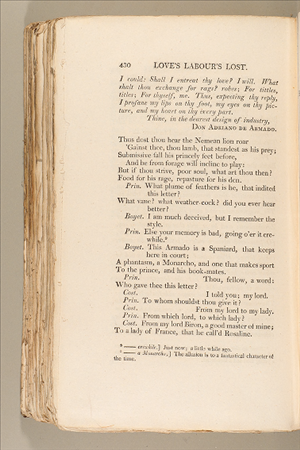 430 LOVE'S LABOUR'S LOST.
I could: Shall I entreat thy love? I will. What
shalt thou exchange for rags? robes; For tittles,
titles; For thyself, me. Thus, expecting thy reply,
I profane my lips on thy foot, my eyes on thy pic-
ture, and my heart on thy every part.
Thine, in the dearest design of industry,
DON ADRIANO DE ARMADO.
Thus dost thou hear the Nemean lion roar
'Gainst thee, thou lamb, that standest as his prey;
Submissive fall his princely feet before,
And he from forage will incline to play:
But if thou strive, poor soul, what art thou then?
Food for his rage, repasture for his den.
Prin. What plume of feathers is he, that indited
this letter?
What vane? what weather-cock? did you ever hear
better?
Boyet. I am much deceived, but I remember the
style.
Prin. Else your memory is bad, going o'er it ere-
while.
Boyet. This Armado is a Spaniard, that keeps
here in court;
A phantasm, a Monarcho, and one that makes sport
To the prince, and his book-mates.
Prin. Thou, fellow, a word:
Who gave thee this letter?
Cost. I told you; my lord.
Prin. To whom shouldst thou give it?
Cost. From my lord to my lady.
Prin. From which lord, to which lady?
Cost. From my lord Biron, a good master of mine;
To a lady of France, that he call'd Rosaline.
—— erewhile.] Just now; a little while ago.
—— a Monarcho,] The allusion is to a fantastical character of
the time.